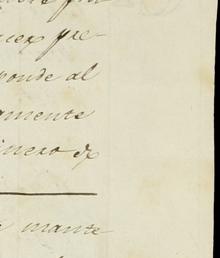 uez pre-
ponde al
amente
inero de
mante